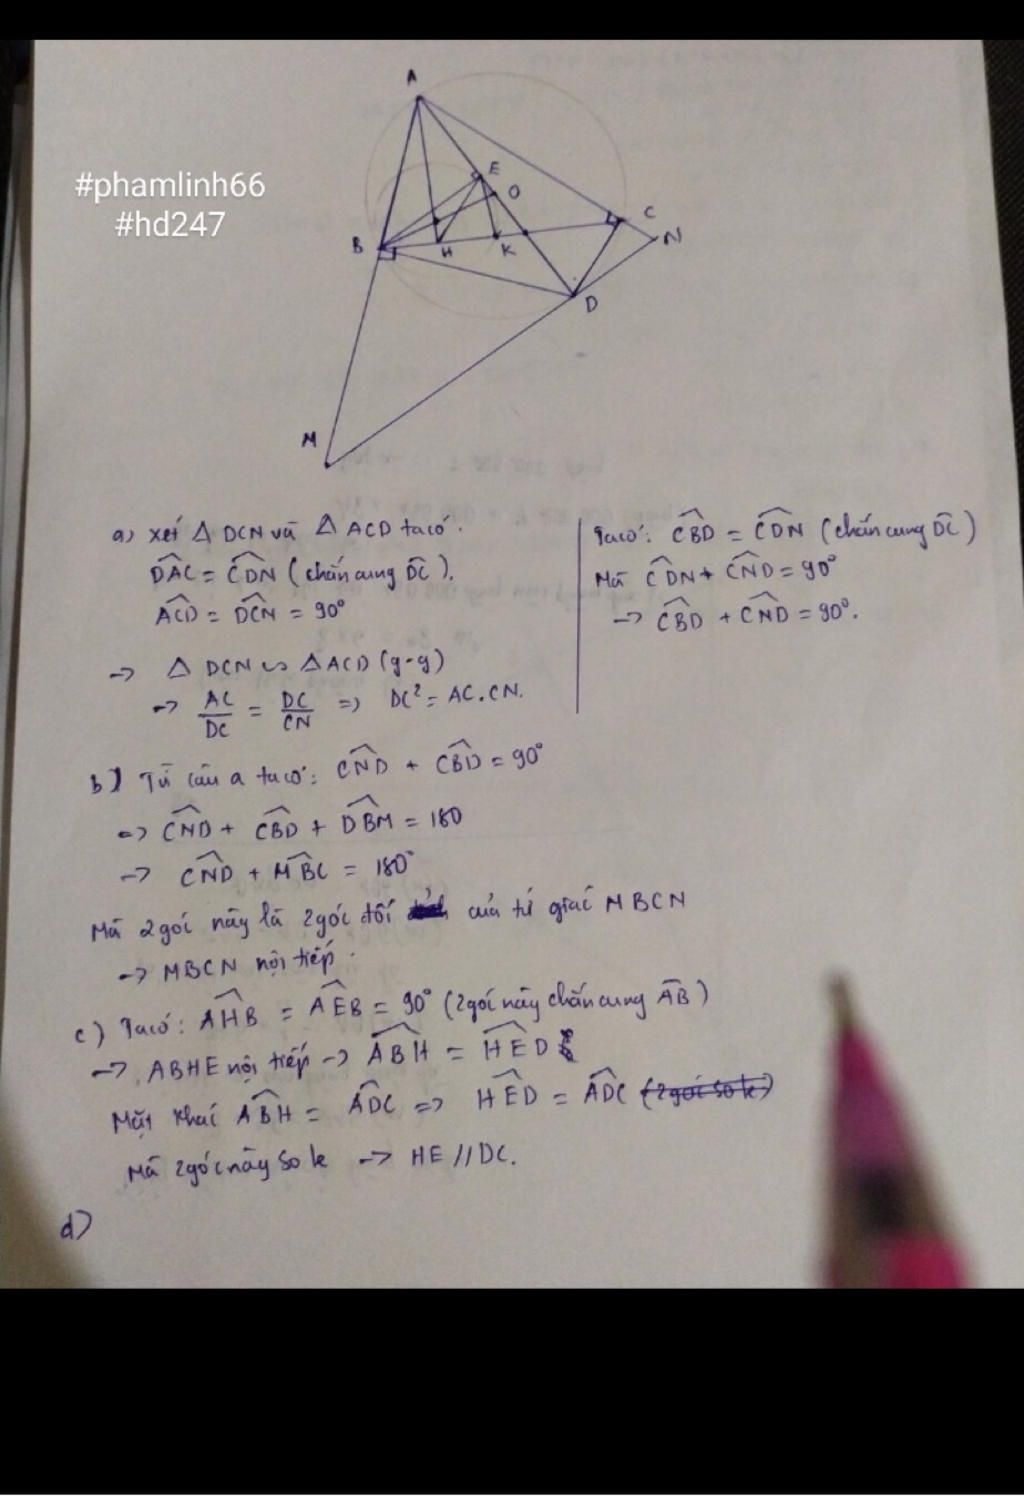 #phamlinh66
#hd247
A
E
O
B
C
N
H
K
D
M
a) xét △ DCN và △ ACD ta có:
DAC = CDN (chắn cung DC).
ACD = DCN = 90°
→ △ DCN ∽ △ ACD (g-g)
→ AC/DC = DC/CN ⇒ DC² = AC.CN.
Ta có: CBD = CDN (chắn cung DC)
Mà CDN + CND = 90°
→ CBD + CND = 90°.
b) Từ câu a ta có: CND + CBD = 90°
⇒ CND + CBD + DBM = 180
→ CND + MBC = 180°
Mà 2 góc này là 2 góc đối của tứ giác MBCN
→ MBCN nội tiếp.
c) Ta có: AHB = AEB = 90° (2 góc này chắn cung AB)
→ ABHE nội tiếp → ABH = HED
Mặt khác ABH = ADC ⇒ HED = ADC (2 góc so le)
Mà 2 góc này so le → HE // DC.
d)